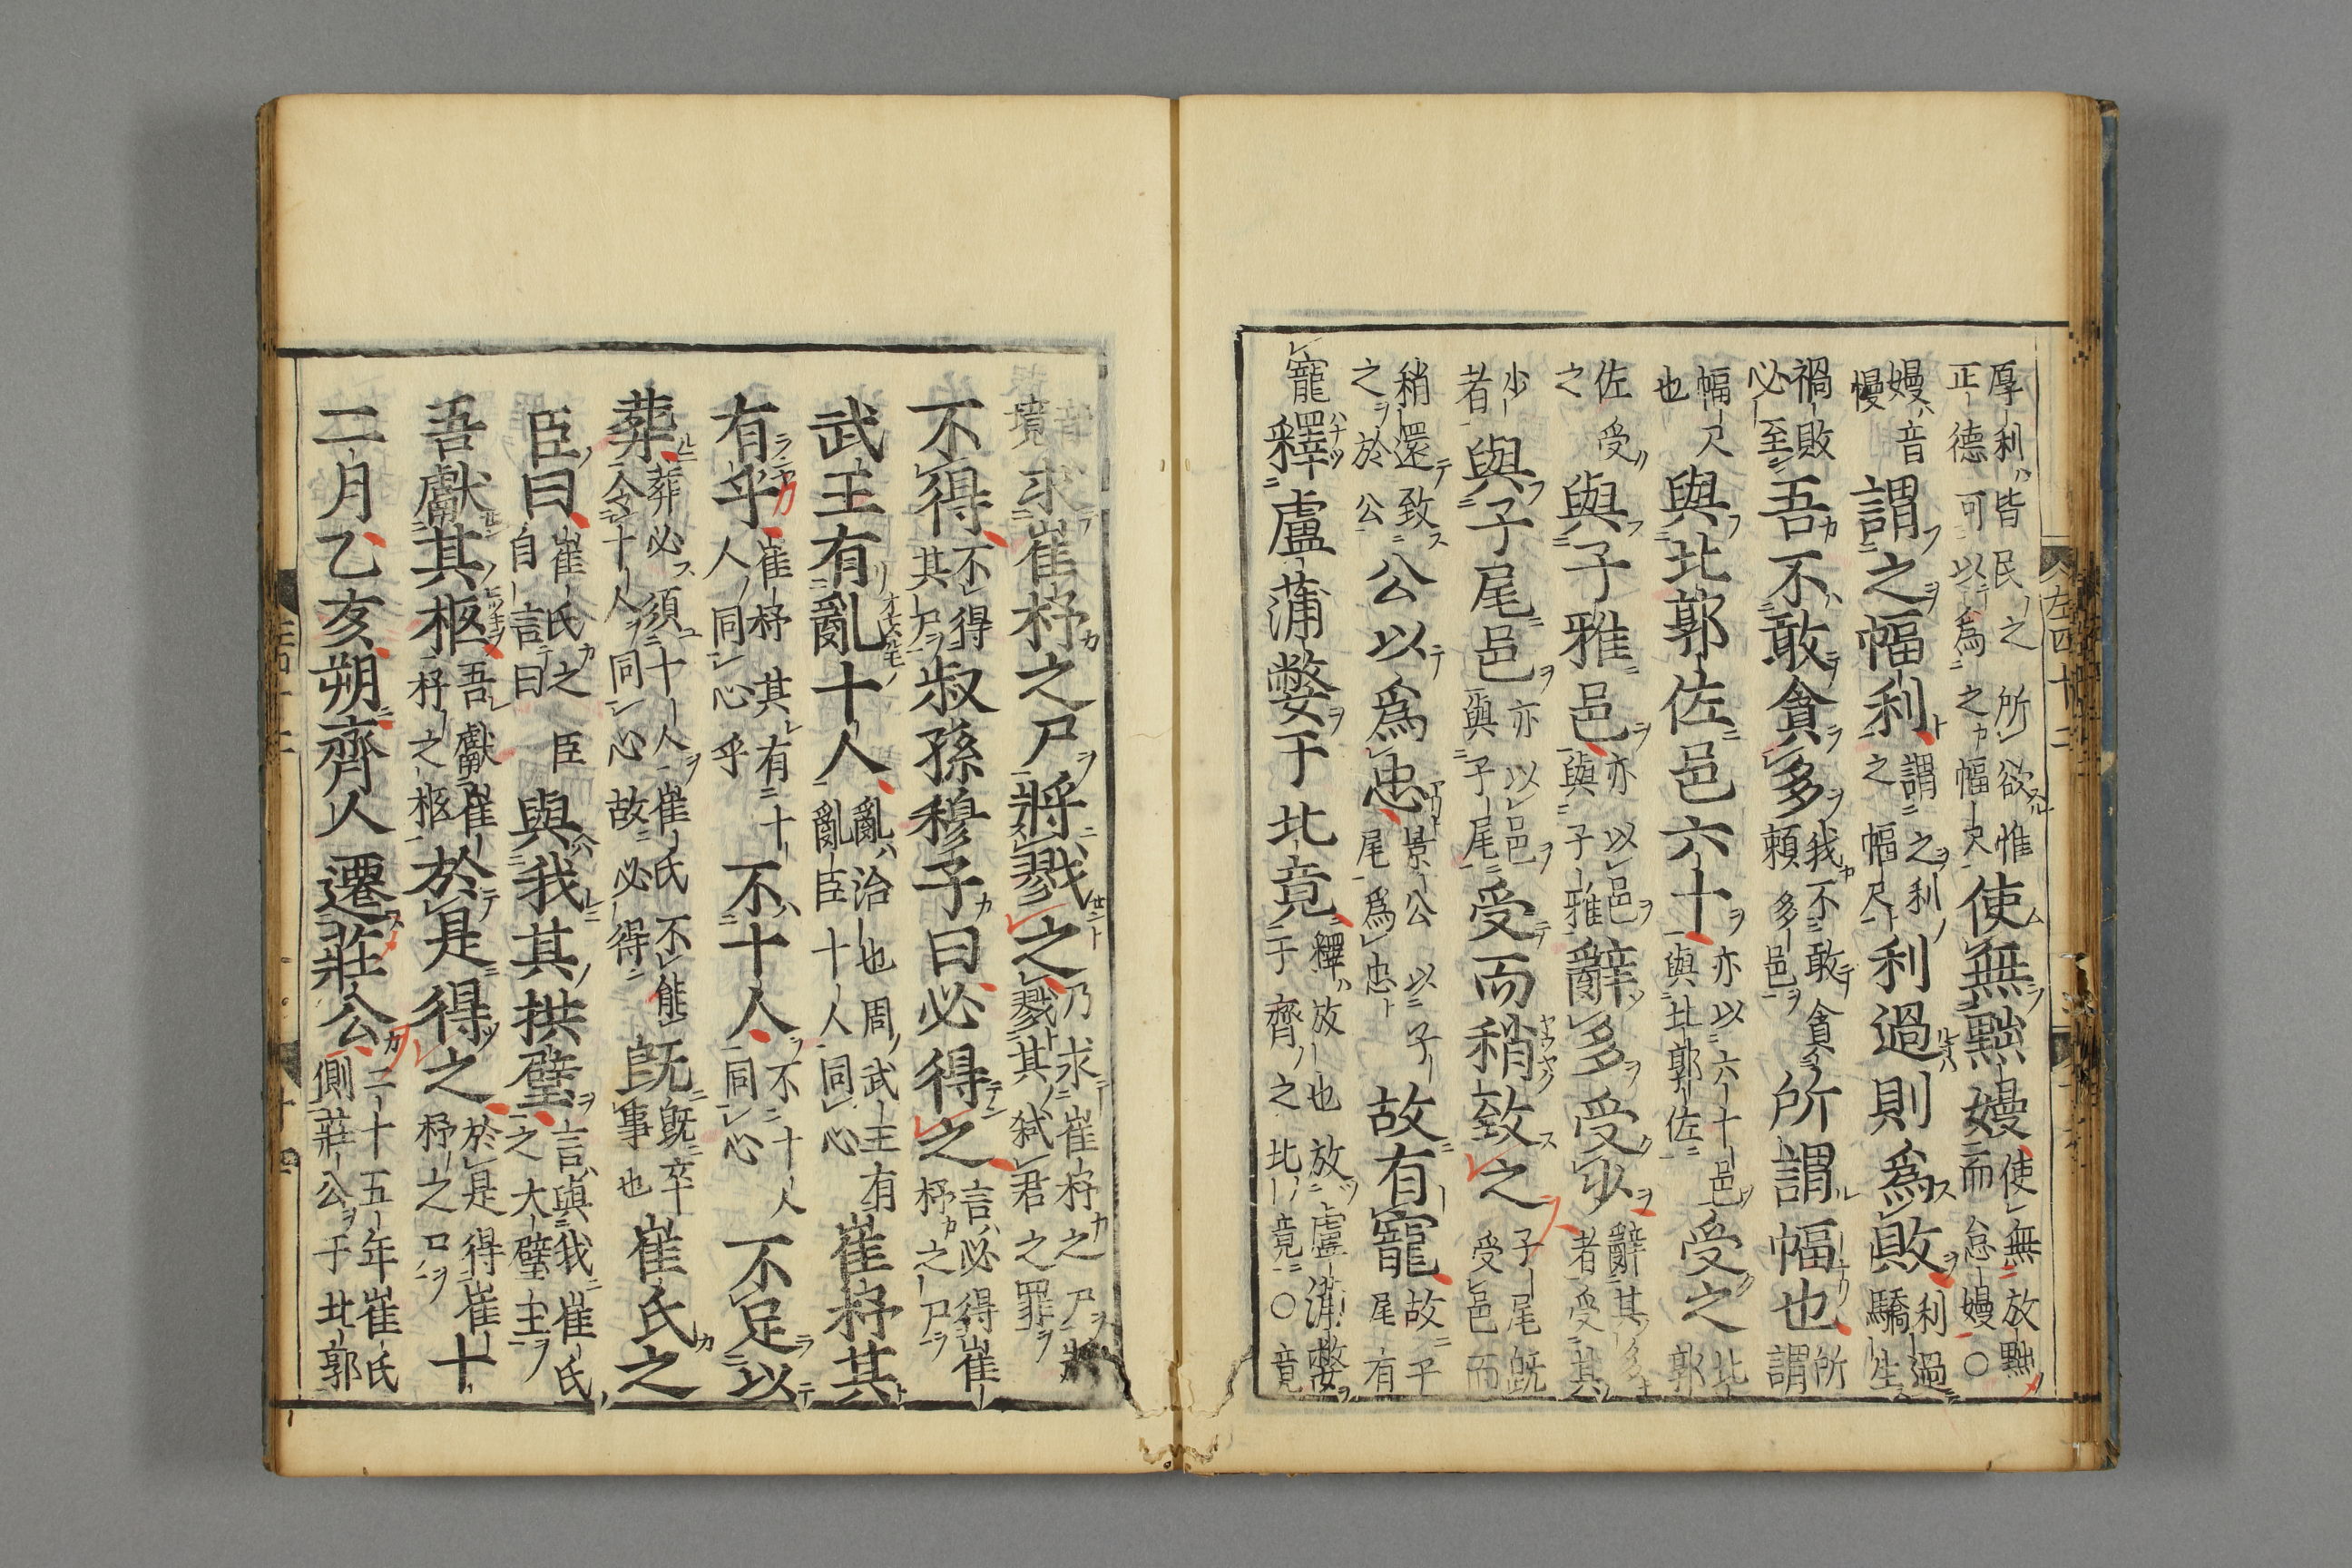 厚利皆民之所欲惟正德可以爲之幅尺使無黜嫚使無放黜而怠嫚○
嫚音慢謂之幅利謂之利之幅尺利過則爲敗利過驕生
禍敗必至吾不敢貪多我不敢貪多頼多邑所謂幅也所謂
幅尺也與北郭佐邑六十亦以六十邑與北郭佐受之北郭
佐受之與子雅邑亦以邑與子雅辭多受少辭其多者受其
少者與子尾邑亦以邑與子尾受而稍致之子尾既受邑而
稍還致之於公公以爲忠景公以子尾爲忠故有寵故子尾有
寵釋盧蒲嫳于北竟釋放也放盧蒲嫳于齊之北竟○竟
音境求崔杼之尸將戮之乃求崔杼之尸將戮其弑君之罪
不得不得其尸叔孫穆子曰必得之言必得崔杼之尸
武王有亂十人亂治也周武王有亂臣十人同心崔杼其
有乎崔杼其有十人同心乎不十人不十人同心不足以
葬葬必須十人崔氏不能令十人同心故必得既既卒事也崔氏之
臣曰崔氏之臣自言曰與我其拱璧言與我崔氏之大璧主
吾獻其柩吾獻崔杼之柩於是得之於是得崔杼之尸十
二月乙亥朔齊人遷莊公二十五年崔氏側莊公于北郭